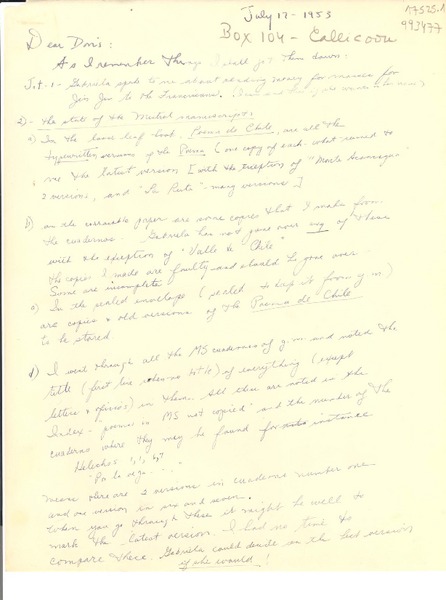 July 17 - 1953
Box 104 - Callicoon
993477
Dear Doris:
As I remember things I shall get them down.
1st - Gabriela spoke to me about sending money for masses for
Jin Jin to the Franciscans.
2) - the state of the Mistral manuscripts:
a) In the loose leaf book, Poema de Chile, are all the
typewritten versions of the Poema (one copy of each - what seemed to
me the latest version [with the exception of "Monte Aconcagua"
2 versions, and "La Ruta" - many versions.]
b) on the erasable paper are some copies that I made from
the cuadernos. Gabriela has not gone over any of these
with the exception of "Valle de Chile"
The copies I made are faulty and should be gone over.
Some are incomplete.
c) In the sealed envelope (sealed to keep it from you)
are copies & old versions of the Poema de Chile
to be stored.
d) I went through all the MS cuadernos of you and noted the
title (first line when no title) of everything (except
letters & oficios) in them. All these are noted in the
Index - poems in MS not copied and the number of the
cuaderno where they may be found for instance
Helechos 1, 1, 6, 7
means there are 2 versions in cuaderno number one
and one version in six and seven.
When you go through these it might be well to
mark the latest version. I had no time to
compare these. Gabriela could decide on the best versions
if she would!